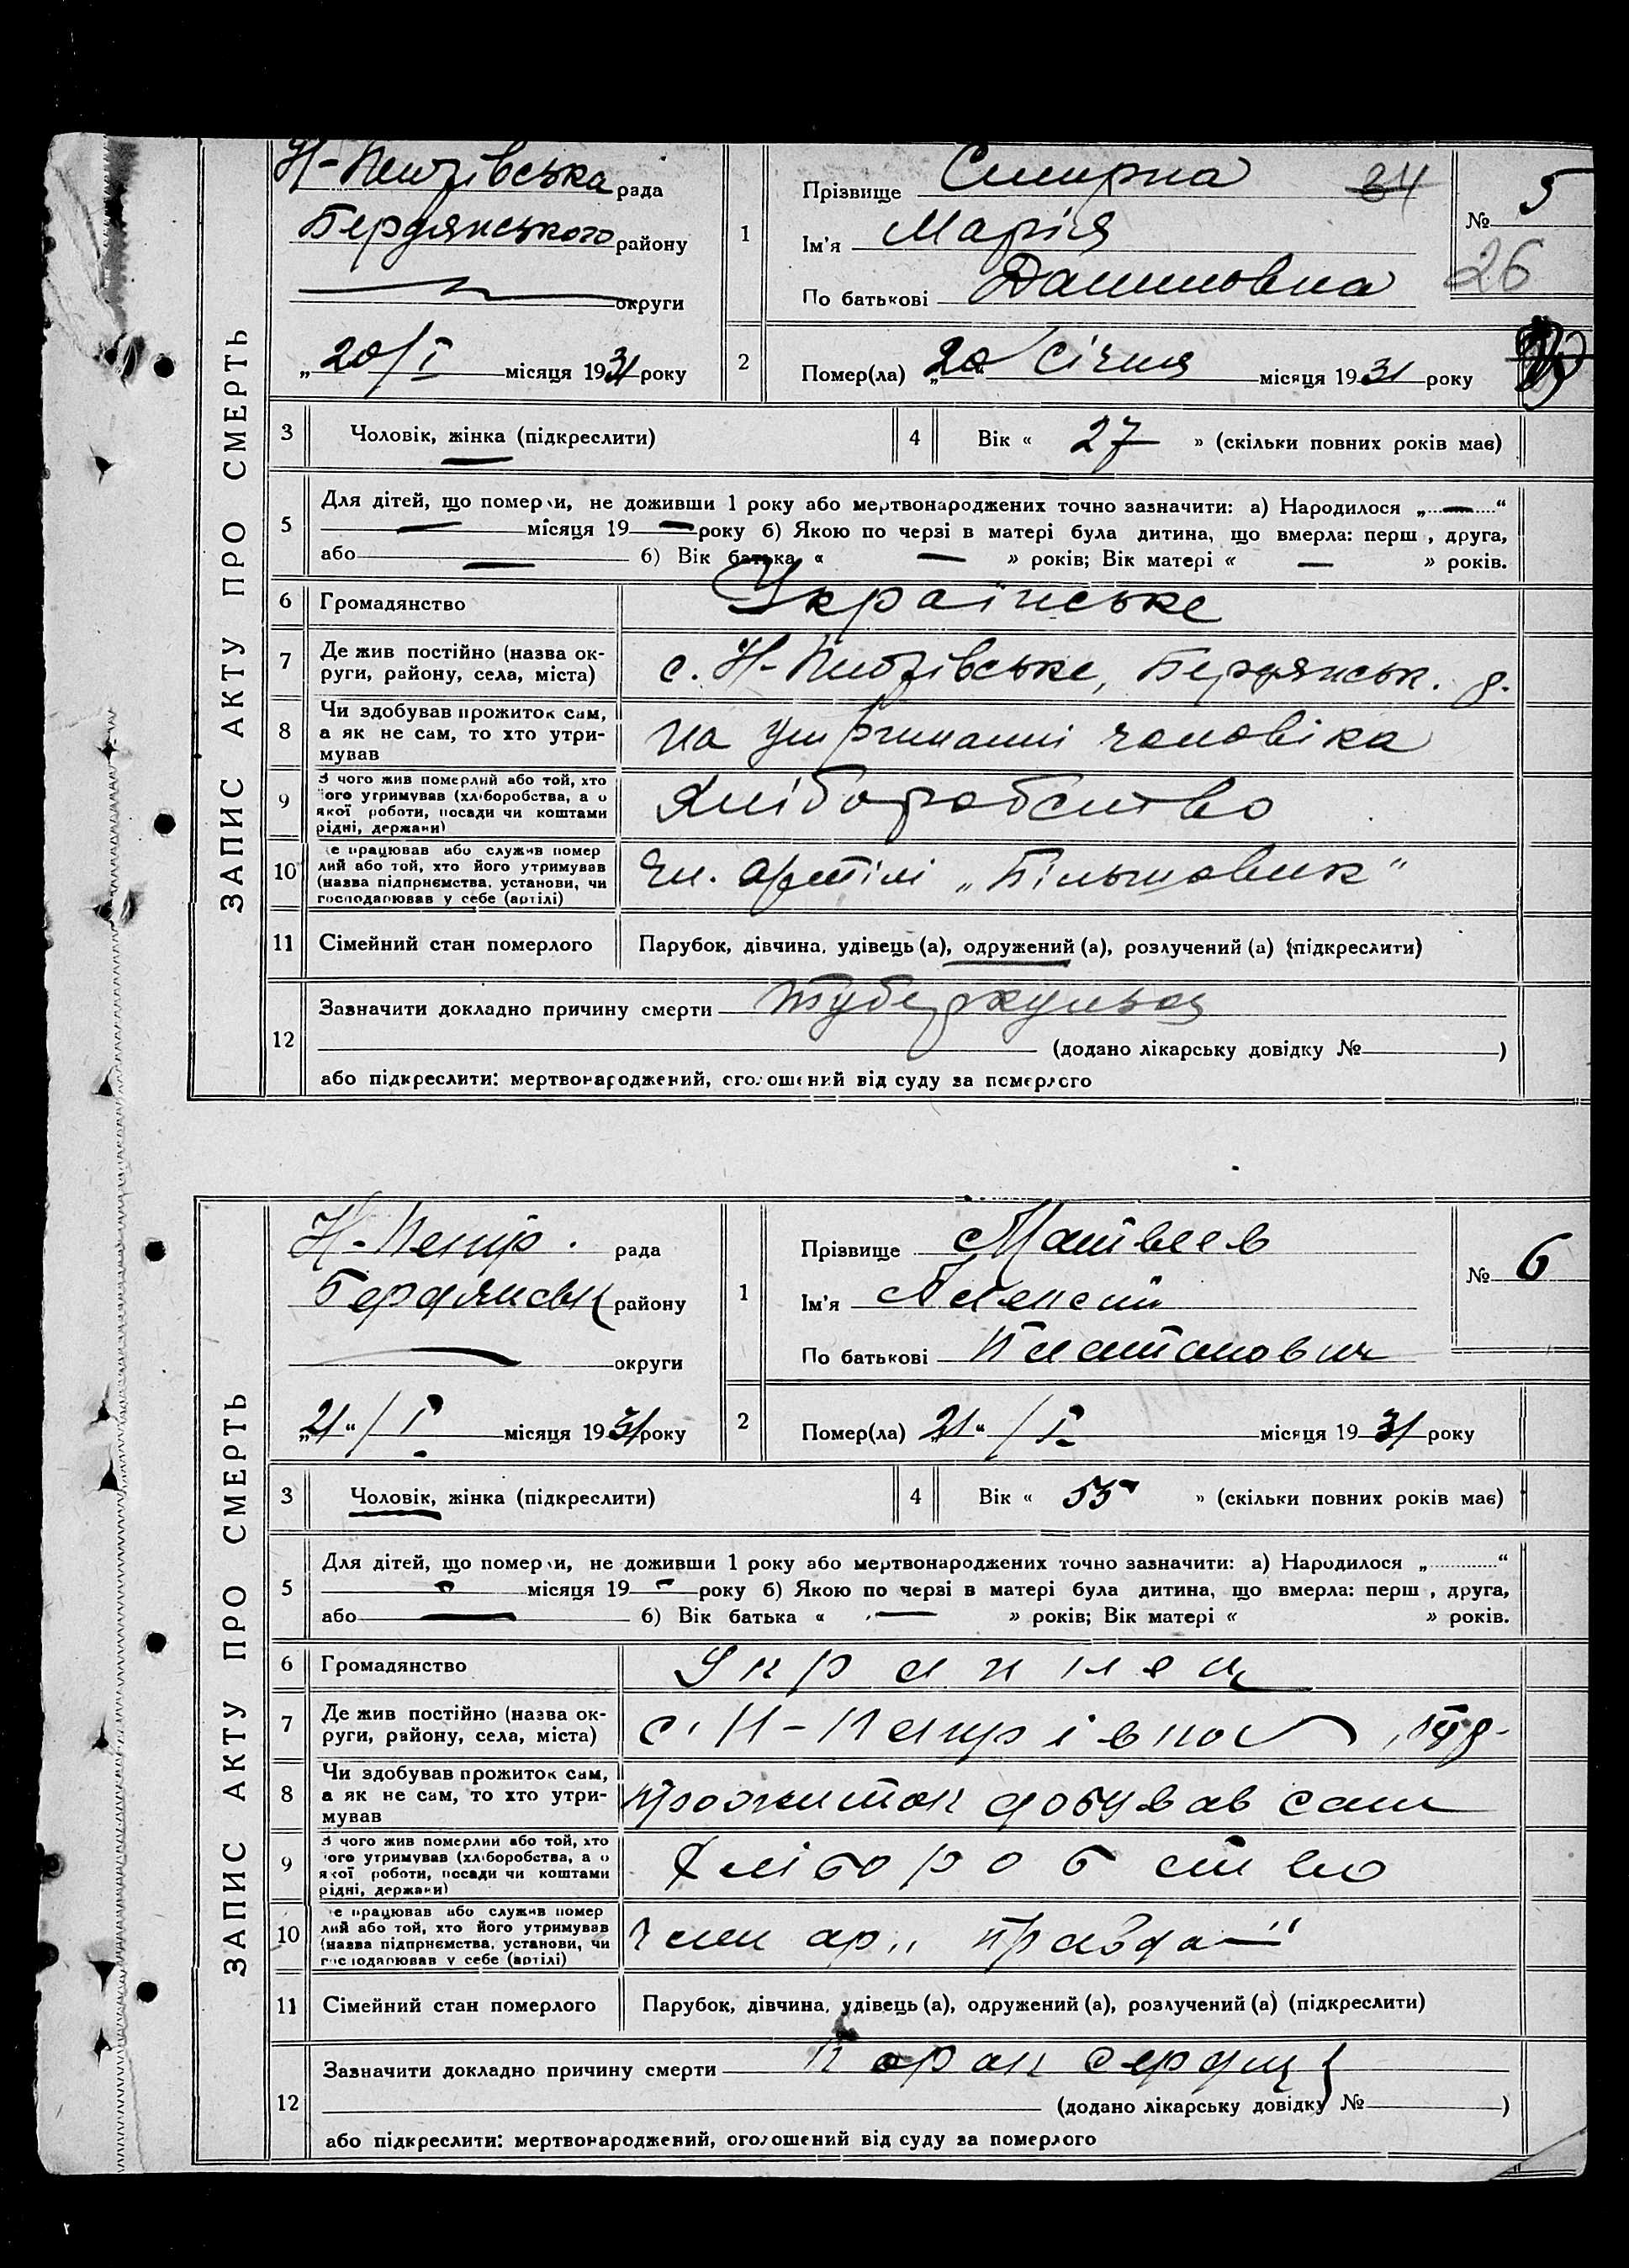 ЗАПИС АКТУ ПРО СМЕРТЬ
рада
Бердянського району
округи
„20/I місяця 1931 року
1
Прізвище Смирна 84
Ім'я Марія
По батькові
№ 5
26
2
Помер(ла) „20“ Січня місяця 1931 року
3 Чоловік, жінка (підкреслити)
4 Вік « 27 » (скільки повних років має)
5
Для дітей, що померли, не доживши 1 року або мертвонароджених точно зазначити: а) Народилося „—“
— місяця 19— року б) Якою по черзі в матері була дитина, що вмерла: перш , друга,
або — б) Вік батька « — » років; Вік матері « — » років.
6 Громадянство Українське
7
Де жив постійно (назва ок-
руги, району, села, міста)
с. Бердянськ. р.
8
Чи здобував прожиток сам,
а як не сам, то хто утри-
мував
на утриманні чоловіка
9
З чого жив померлий або той, хто
його утримував (хліборобства, а о
якої роботи, посади чи коштами
рідні, держави)
Хліборобство
10
Де працював або служив помер
лий або той, хто його утримував
(назва підприємства, установи, чи
господарював у себе (артілі)
Чл. артілі „Більшовик“
11 Сімейний стан померлого Парубок, дівчина, удівець (а), одружений (а), розлучений (а) (підкреслити)
12
Зазначити докладно причину смерти туберкульоз
(додано лікарську довідку № )
або підкреслити: мертвонароджений, оголошений від суду за померлого
ЗАПИС АКТУ ПРО СМЕРТЬ
Н-Петр. рада
Бердянськ району
округи
„21“/I місяця 1931 року
1
Прізвище Матвеев
Ім'я Алексей
По батькові Платонович
№ 6
2
Помер(ла) „21“/I місяця 1931 року
3 Чоловік, жінка (підкреслити)
4 Вік « 55 » (скільки повних років має)
5
Для дітей, що померли, не доживши 1 року або мертвонароджених точно зазначити: а) Народилося „ “
— місяця 19— року б) Якою по черзі в матері була дитина, що вмерла: перш , друга,
або — б) Вік батька « — » років; Вік матері « » років.
6 Громадянство
7
Де жив постійно (назва ок-
руги, району, села, міста)
с. Н-Петрівка
8
Чи здобував прожиток сам,
а як не сам, то хто утри-
мував
прожиток добував сам
9
З чого жив померлий або той, хто
його утримував (хліборобства, а о
якої роботи, посади чи коштами
рідні, держави)
Хліборобство
10
Де працював або служив помер
лий або той, хто його утримував
(назва підприємства, установи, чи
господарював у себе (артілі)
Член ар „правда“
11 Сімейний стан померлого Парубок, дівчина, удівець (а), одружений (а), розлучений (а) (підкреслити)
12
Зазначити докладно причину смерти Порок сердця
(додано лікарську довідку № )
або підкреслити: мертвонароджений, оголошений від суду за померлого